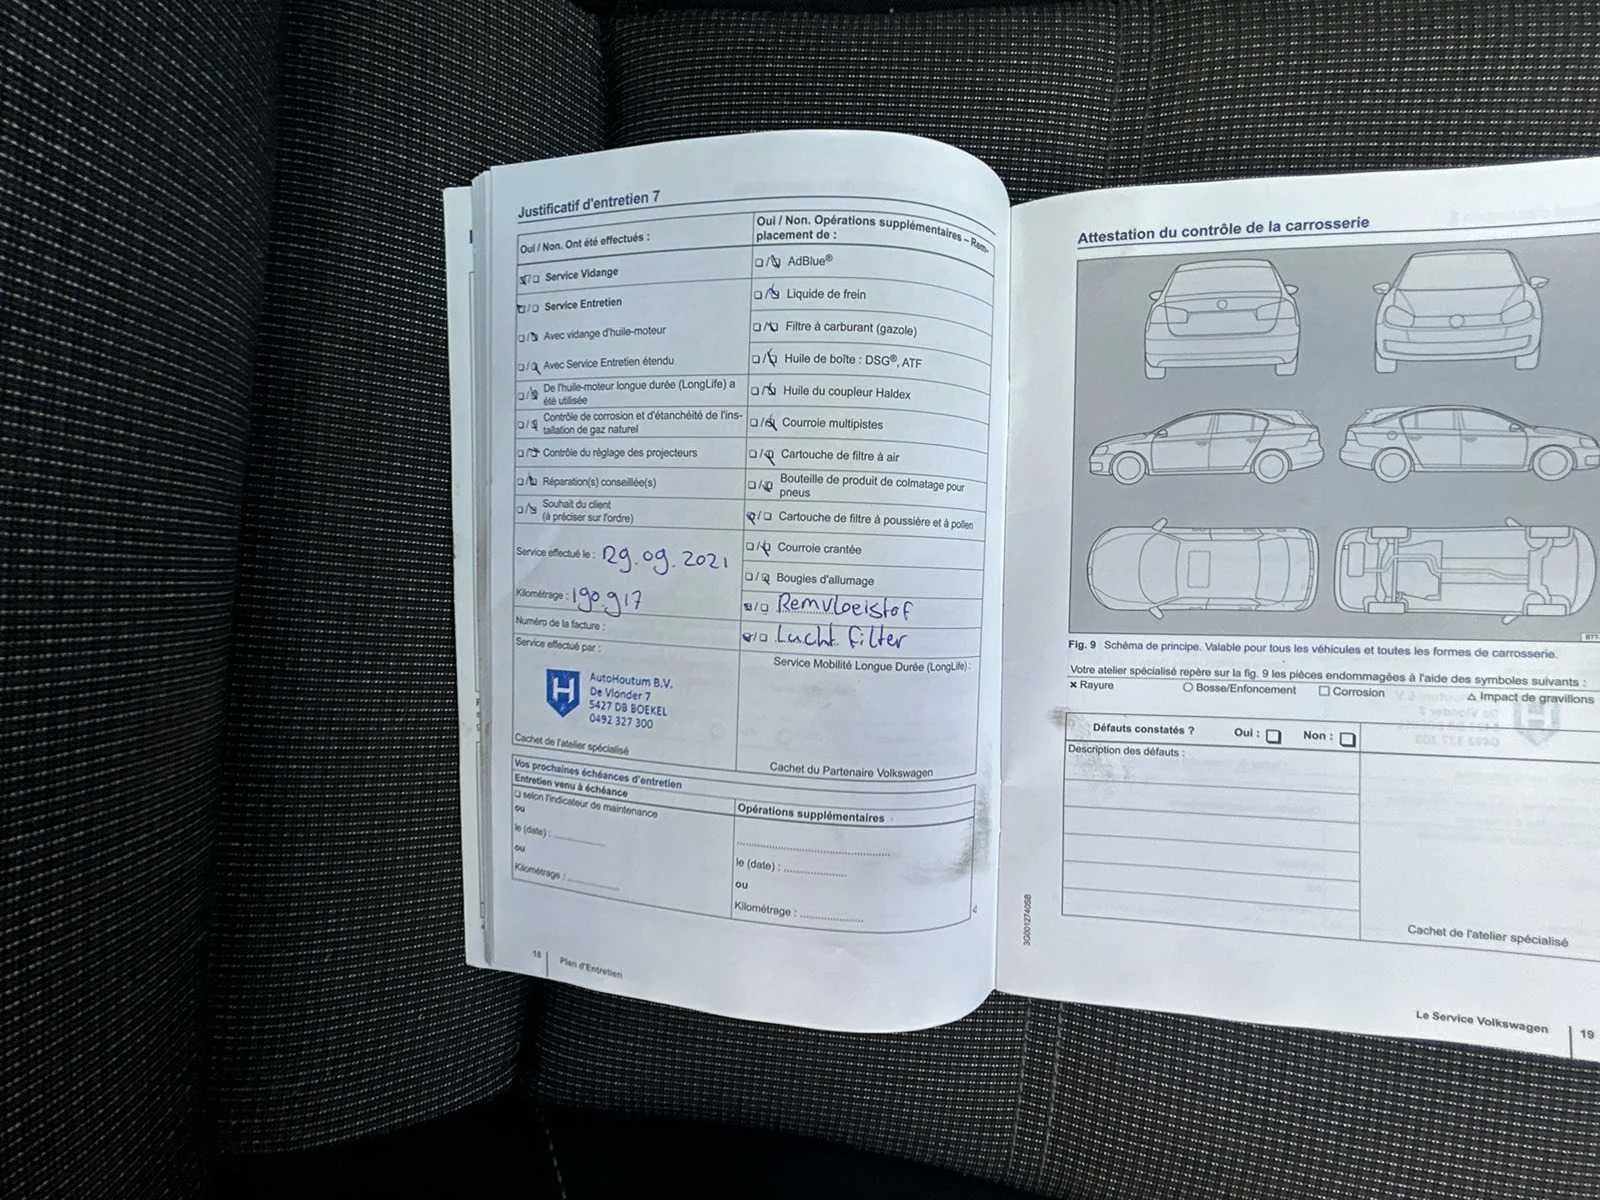 Justificatif d'entretien 7
Oui / Non. Ont été effectués :
Service Vidange
Service Entretien
Avec vidange d'huile-moteur
Avec Service Entretien étendu
De l'huile-moteur longue durée (LongLife) a
été utilisée
Contrôle de corrosion et d'étanchéité de l'ins-
tallation de gaz naturel
Contrôle du réglage des projecteurs
Réparation(s) conseillée(s)
Souhait du client
(à préciser sur l'ordre)
Service effectué le : 29.09.2021
Kilométrage : 190.917
Numéro de la facture :
Service effectué par :
H
AutoHoutum B.V.
De Vlonder 7
5427 DB BOEKEL
0492 327 300
Cachet de l'atelier spécialisé
Oui / Non. Opérations supplémentaires – Rem-
placement de :
AdBlue®
Liquide de frein
Filtre à carburant (gazole)
Huile de boîte : DSG®, ATF
Huile du coupleur Haldex
Courroie multipistes
Cartouche de filtre à air
Bouteille de produit de colmatage pour
pneus
Cartouche de filtre à poussière et à pollen
Courroie crantée
Bougies d'allumage
Remvloeistof
Lucht filter
Service Mobilité Longue Durée (LongLife) :
Cachet du Partenaire Volkswagen
Vos prochaines échéances d'entretien
Entretien venu à échéance
selon l'indicateur de maintenance
ou
le (date) :
ou
Kilométrage :
Opérations supplémentaires
le (date) :
ou
Kilométrage :
18 Plan d'Entretien
Attestation du contrôle de la carrosserie
Fig. 9 Schéma de principe. Valable pour tous les véhicules et toutes les formes de carrosserie.
Votre atelier spécialisé repère sur la fig. 9 les pièces endommagées à l'aide des symboles suivants :
× Rayure ○ Bosse/Enfoncement □ Corrosion △ Impact de gravillons
Défauts constatés ? Oui : Non :
Description des défauts :
Cachet de l'atelier spécialisé
3G0012740SB
Le Service Volkswagen 19